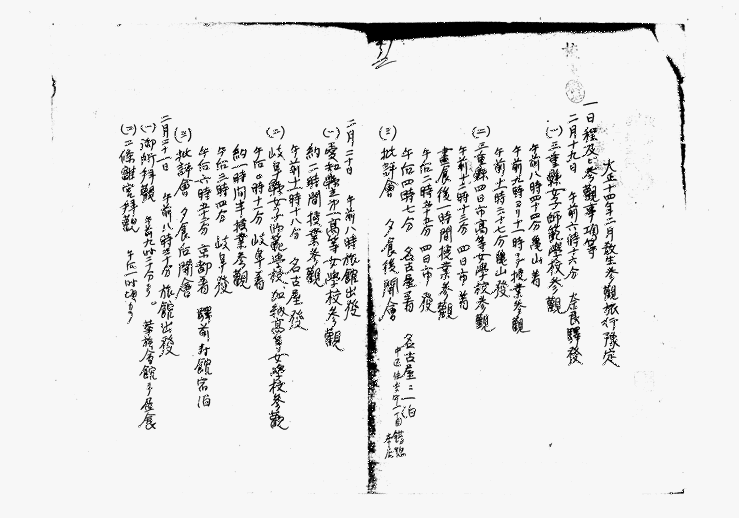 大正十四年二月教生参観旅行豫定
一日程及ビ参觀事項等
二月十九日 午前六時十六分 奈良驛發
(一)三重縣女子師範學校参觀
午前八時四十四分亀山着
午前九時ヨリ十一時マデ授業参觀
午前十一時二十七分亀山發
(二)三重縣四日市高等女學校参觀
午前十二時十三分 四日市着
晝食後一時間授業参觀
午后二時五十五分 四日市發
午后四時七分 名古屋着
(三)批評會 夕食後開會
名古屋ニ一泊
二月二十日 午前八時旅館出發
(一)愛知縣立第一高等女學校参觀
約二時間授業参觀
午前十一時十八分 名古屋發
(二)岐阜縣女子師範學校、加納高等女學校参觀
午后〇時十二分 岐阜着
約一時間半授業参觀
午后三時四分 岐阜發
午后六時五十三分 京都着 驛前 館宿泊
(三)批評會 夕食后開會
二月二十一日 午前八時三十分旅館出發
(一)御所拝觀 午前九時二十分ヨリ。 華族會館ヨリ昼食
(二)二條離宮拝觀 午后一時頃ヨリ